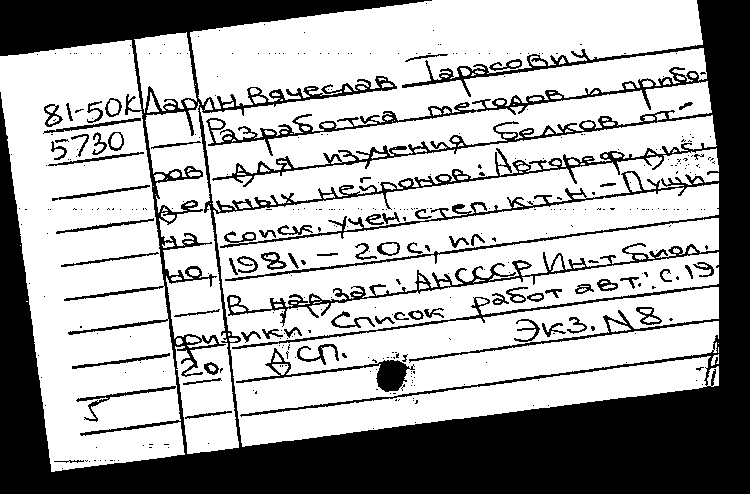 81-50К Ларин, Вячеслав Тарасович.
5730 Разработка методов и прибо-
ров для изучения белков от-
дельных нейронов: Автореф. дис.
на соиск. учен. степ. к.т.н. - Пущи-
но, 1981. - 20с., ил.
В надзаг.: АНСССР, Ин-т биол.
физики. Список работ авт.: с.19-
20. ДСП. Экз. N8.
5